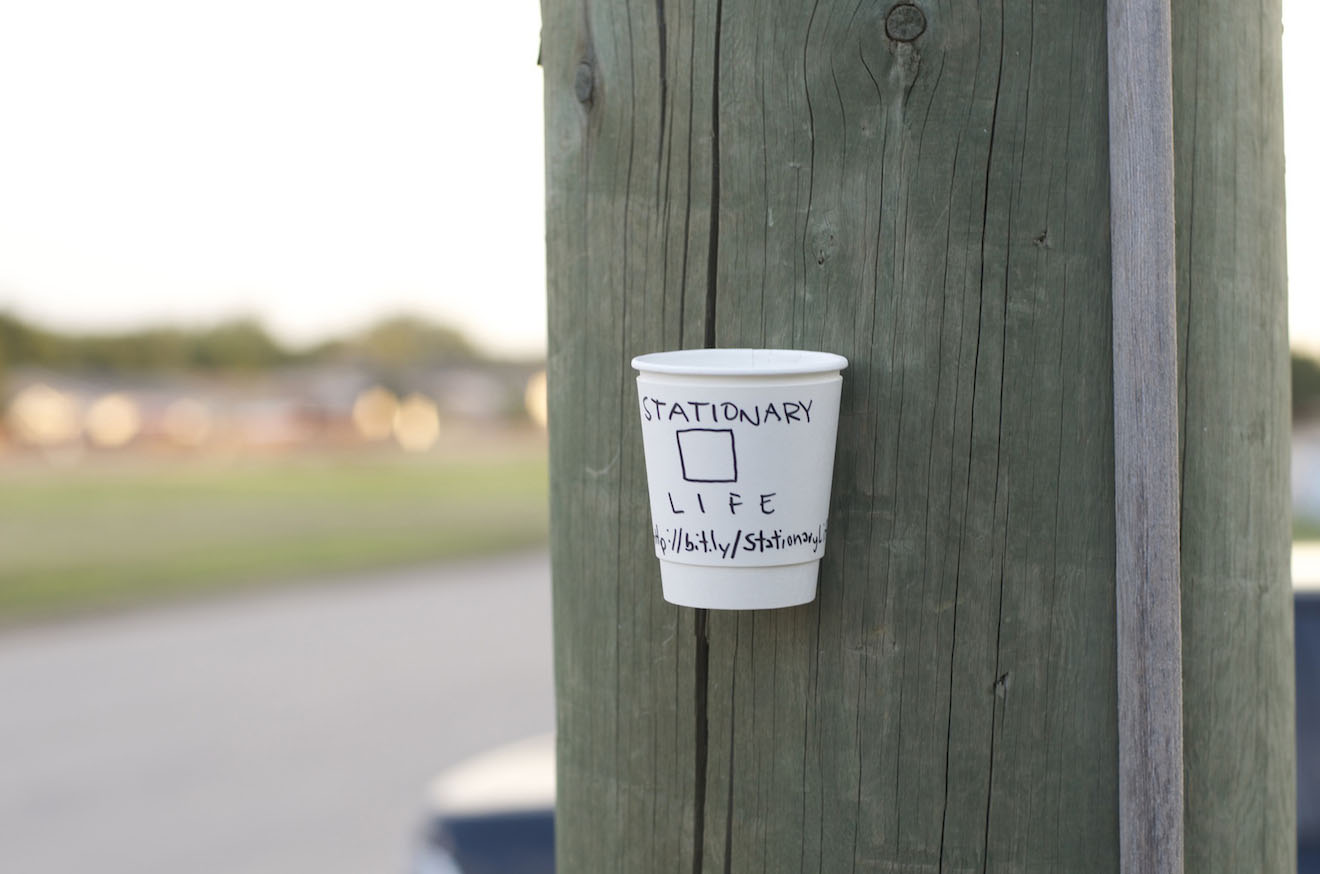 STATIONARY
LIFE
http://bit.ly/StationaryLi